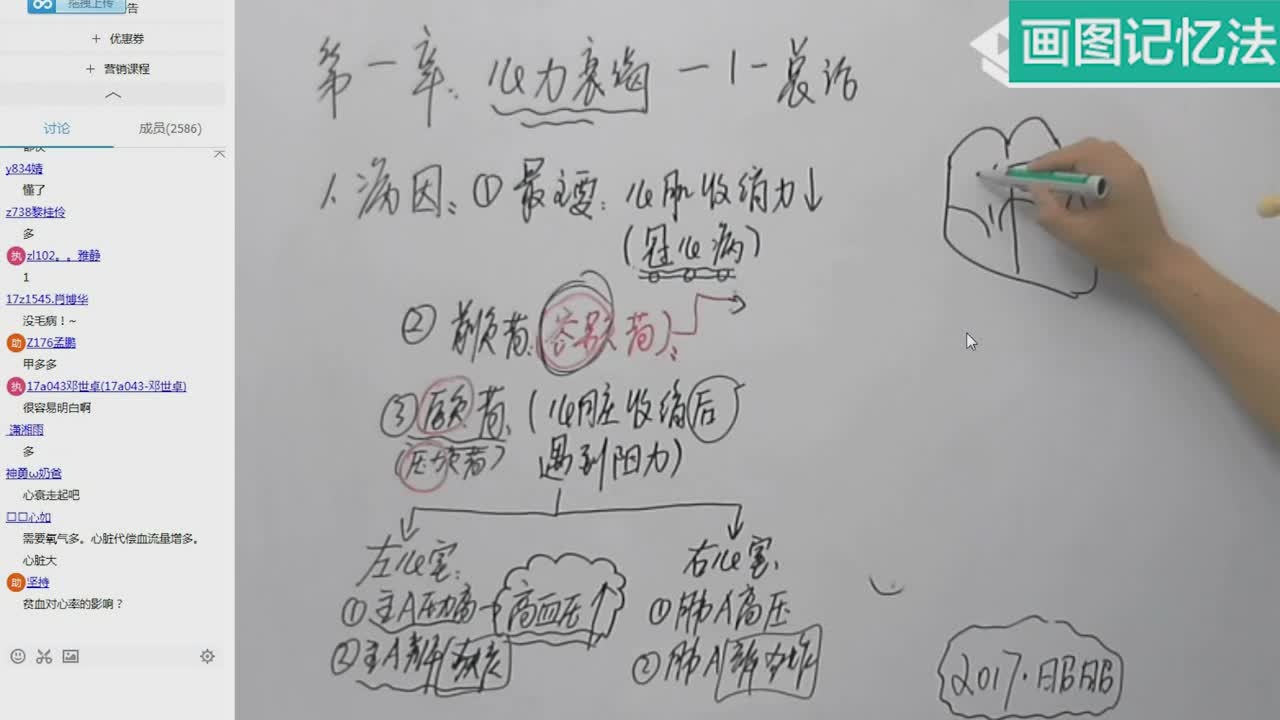 拖拽上传
告
+ 优惠券
+ 营销课程
讨论 成员(2586)
y834嫱
懂了
z738黎桂伶
多
执 zl102。。雅静
1
17z1545.肖博华
没毛病！~
助 Z176孟鹏
甲多多
执 17a043邓世卓(17a043-邓世卓)
很容易明白啊
潇湘雨
多
神黄ω奶爸
心衰走起吧
□□心如
需要氧气多。心脏代偿血流量增多。
心脏大
助 坚持
贫血对心率的影响？
画图记忆法
第一章：心力衰竭 —1— 总论
1. 病因：①最主要：心肌收缩力↓
(冠心病)
②前负荷：(容量负荷)：
③后负荷：(心脏收缩后
(压力负荷) 遇到阻力)
左心室： 右心室：
①主A压力高— 高血压↑ ①肺A高压
②主A 狭窄 ②肺A
2017·昭昭